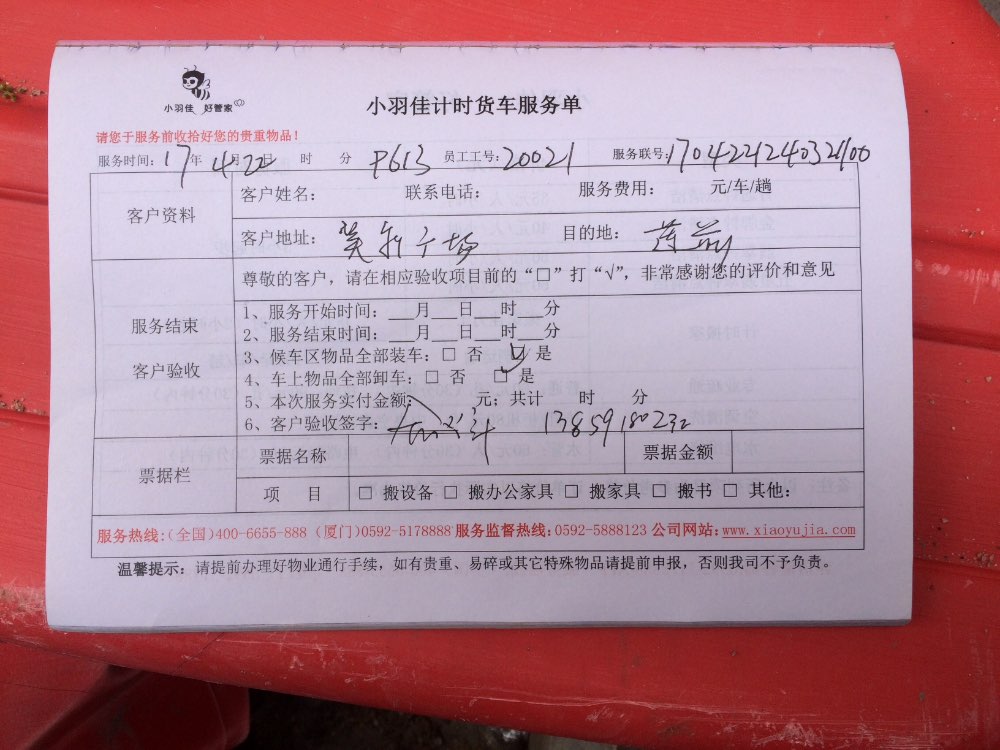 小羽佳 好管家
小羽佳计时货车服务单
请您于服务前收拾好您的贵重物品！
服务时间：17年 4月22日 时 分 P613 员工工号：20021 服务联号：
客户资料
客户姓名： 联系电话： 服务费用： 元/车/趟
客户地址： 广场 目的地：
尊敬的客户，请在相应验收项目前的“□”打“√”，非常感谢您的评价和意见
服务结束
客户验收
1、服务开始时间：___月___日___时___分
2、服务结束时间：___月___日___时___分
3、候车区物品全部装车：□ 否 □ 是
4、车上物品全部卸车：□ 否 □ 是
5、本次服务实付金额： 元；共计 时 分
6、客户验收签字： 13859180232
票据栏
票据名称 票据金额
项 目 □ 搬设备 □ 搬办公家具 □ 搬家具 □ 搬书 □ 其他：
服务热线：（全国）400-6655-888（厦门）0592-5178888 服务监督热线：0592-5888123 公司网站：www.xiaoyujia.com
温馨提示：请提前办理好物业通行手续，如有贵重、易碎或其它特殊物品请提前申报，否则我司不予负责。